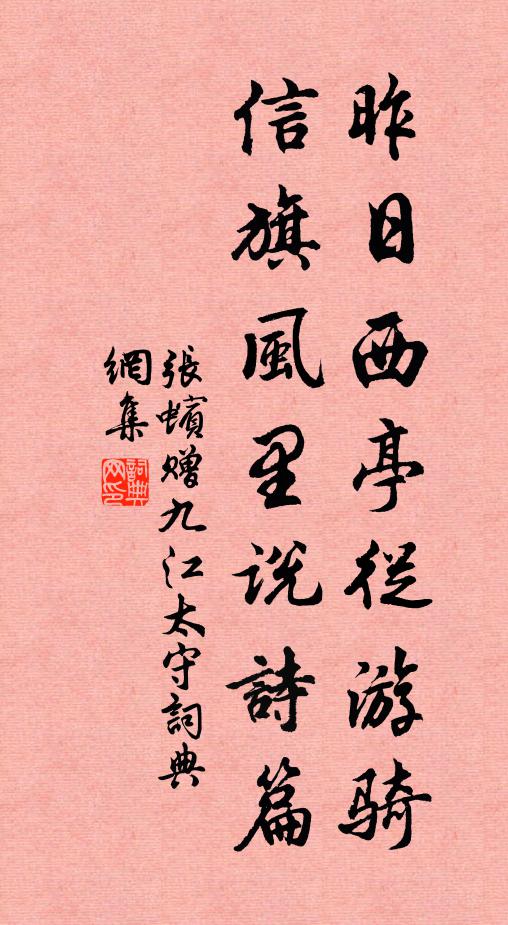 昨日西亭從游騎
信旗風里說詩篇
張蠙赠九江太守詞典
網集
詞典网印